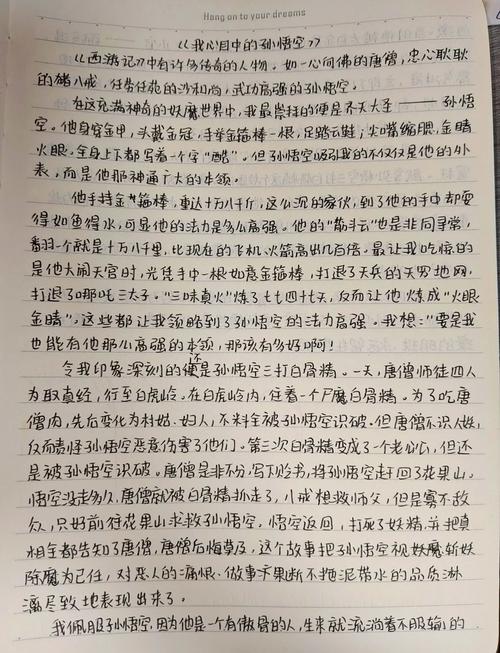 Hang on to your dreams
《我心目中的孙悟空》
《西游记》中有许多传奇的人物。如一心向佛的唐僧,忠心耿耿
的猪八戒,任劳任怨的沙和尚,武功高强的孙悟空。
在这充满神奇的妖魔世界中,我最崇拜的便是齐天大圣——孙悟
空。他身穿金甲,头戴金冠,手举金箍棒一根,足踏云鞋;尖嘴缩腮,金睛
火眼。全身上下都写着一个字“酷”。但孙悟空吸引我的不仅仅是他的外
表,而是他那神通广大的本领。
他手持金箍棒,重达十万八千斤,这么沉的家伙,到了他的手中却耍
得如鱼得水,可显他的法力是多么高强。他的“筋斗云”也是非同寻常,
翻羽一个就是十万八千里,比现在的飞机、火箭高出几百倍。最让我吃惊的
是他大闹天宫时,光凭手中一根如意金箍棒,打退了天兵的天罗地网,
打退了哪吒三太子。“三味真火”炼了七七四十九天,反而让他炼成“火眼
金睛”。这些都让我领略到了孙悟空的法力高强。我想:“要是我
也能有他那么高强的本领,那该有多好啊!
令我印象深刻的还是孙悟空三打白骨精。一天,唐僧师徒四人
为取真经,行至白虎岭。在白虎岭内,住着一个尸魔白骨精。为了吃唐
僧肉,先后变化为村姑、妇人,不料全被孙悟空识破。但唐僧不识人妖,
反而责怪孙悟空恶意伤害了他们。第三次白骨精变成了一个老公公,但还
是被孙悟空识破。唐僧是非不分,写下贬书,将孙悟空赶回了花果山。
悟空没走多久,唐僧就被白骨精抓走了,八戒想救师父,但是寡不敌
众,只好前往花果山求救于孙悟空,悟空返回,打死了妖精,并把真
相全都告知了唐僧,唐僧后悔莫及,这个故事把孙悟空视妖魔、斩妖
除魔为己任,对恶人的痛恨、做事果断不拖泥带水的品质淋
漓尽致地表现出来了。
我佩服孙悟空,因为他是一个有傲骨的人,生来就流淌着不服输的